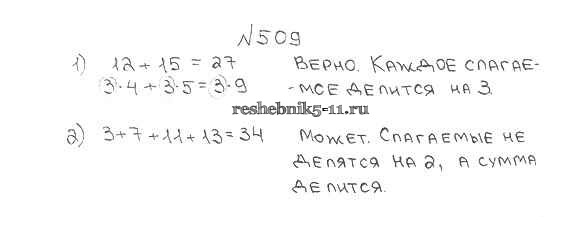 №509
1) 12 + 15 = 27 Верно. Каждое слагае-
3·4 + 3·5 = 3·9 -мое делится на 3.
reshebnik5-11.ru
2) 3+7+11+13=34 Может. Слагаемые не
делятся на 2, а сумма
делится.